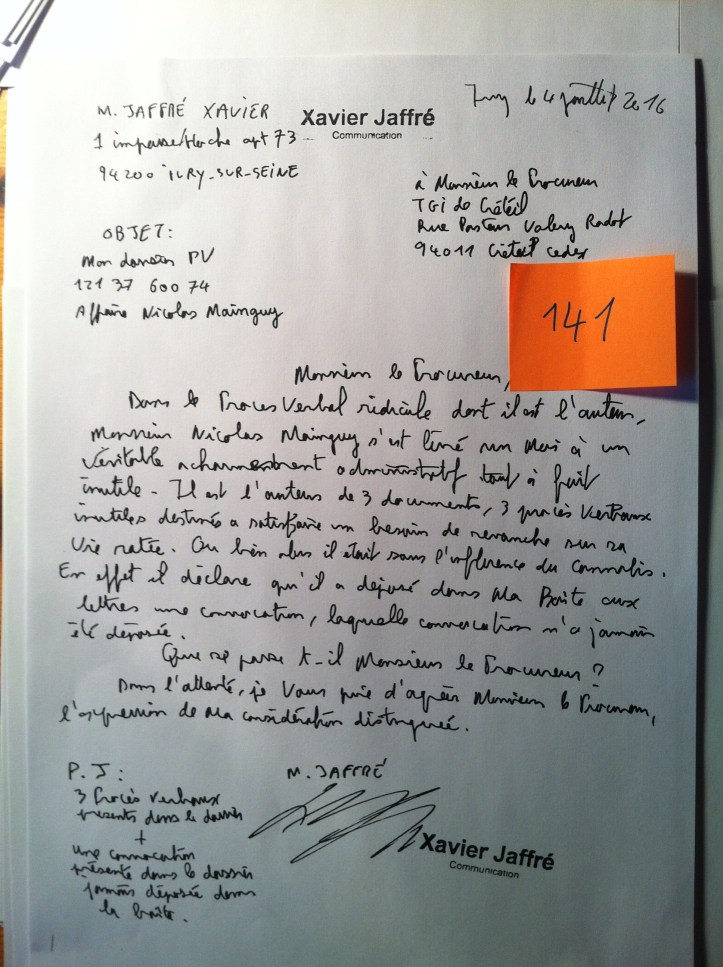 M. JAFFRÉ XAVIER
Xavier Jaffré
Communication
le 4 juillet 2016
1 impasse Hoche apt 73
94200 IVRY-SUR-SEINE
à Monsieur le Procureur
TGI de Créteil
Rue Pasteur Valery Radot
94011 Créteil cedex
OBJET:
Mon dossier PV
121 37 600 74
Affaire Nicolas Mainguy
141
Monsieur le Procureur,
Dans le Procès Verbal ridicule dont il est l'auteur,
Monsieur Nicolas Mainguy s'est livré un mois à un
Véritable acharnement administratif tout à fait
inutile - Il est l'auteur de 3 documents, 3 procès Verbaux
inutiles destinés a satisfaire un besoin de revanche sur sa
Vie ratée. Ou bien alors il était sous l'influence du Cannabis.
En effet il déclare qu'il a déposé dans Ma Boîte aux
lettres une convocation, laquelle convocation n'a jamais
été déposée.
Que se passe t-il Monsieur le Procureur ?
Dans l'attente, je Vous prie d'agréer Monsieur le Procureur,
l'expression de Ma considération distinguée.
P.J:
3 Procès Verbaux
présents dans le dossier
+
une convocation
présente dans le dossier
jamais déposée dans
la boîte.
M. JAFFRÉ
Xavier Jaffré
Communication